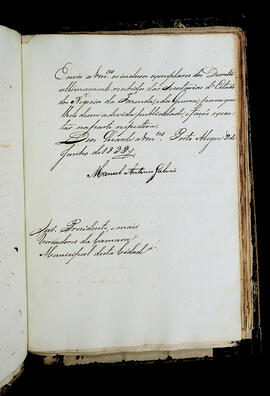 Envio a Vm.ces os inclusos exemplares dos Decretos
ultimamente recebidos das Secretarias d'Estado
dos Negocios da Fazenda, e da Guerra, para que
lhes dem a devida publicidade, e fação execu-
tar na parte respectiva.
Deos Guarde a Vm.ces Porto Alegre 9 de
Junho de 183
Manoel Antonio Galvão
Snr.s Presidente, e mais
Vereadores da Camara
Municipal desta Cidade.